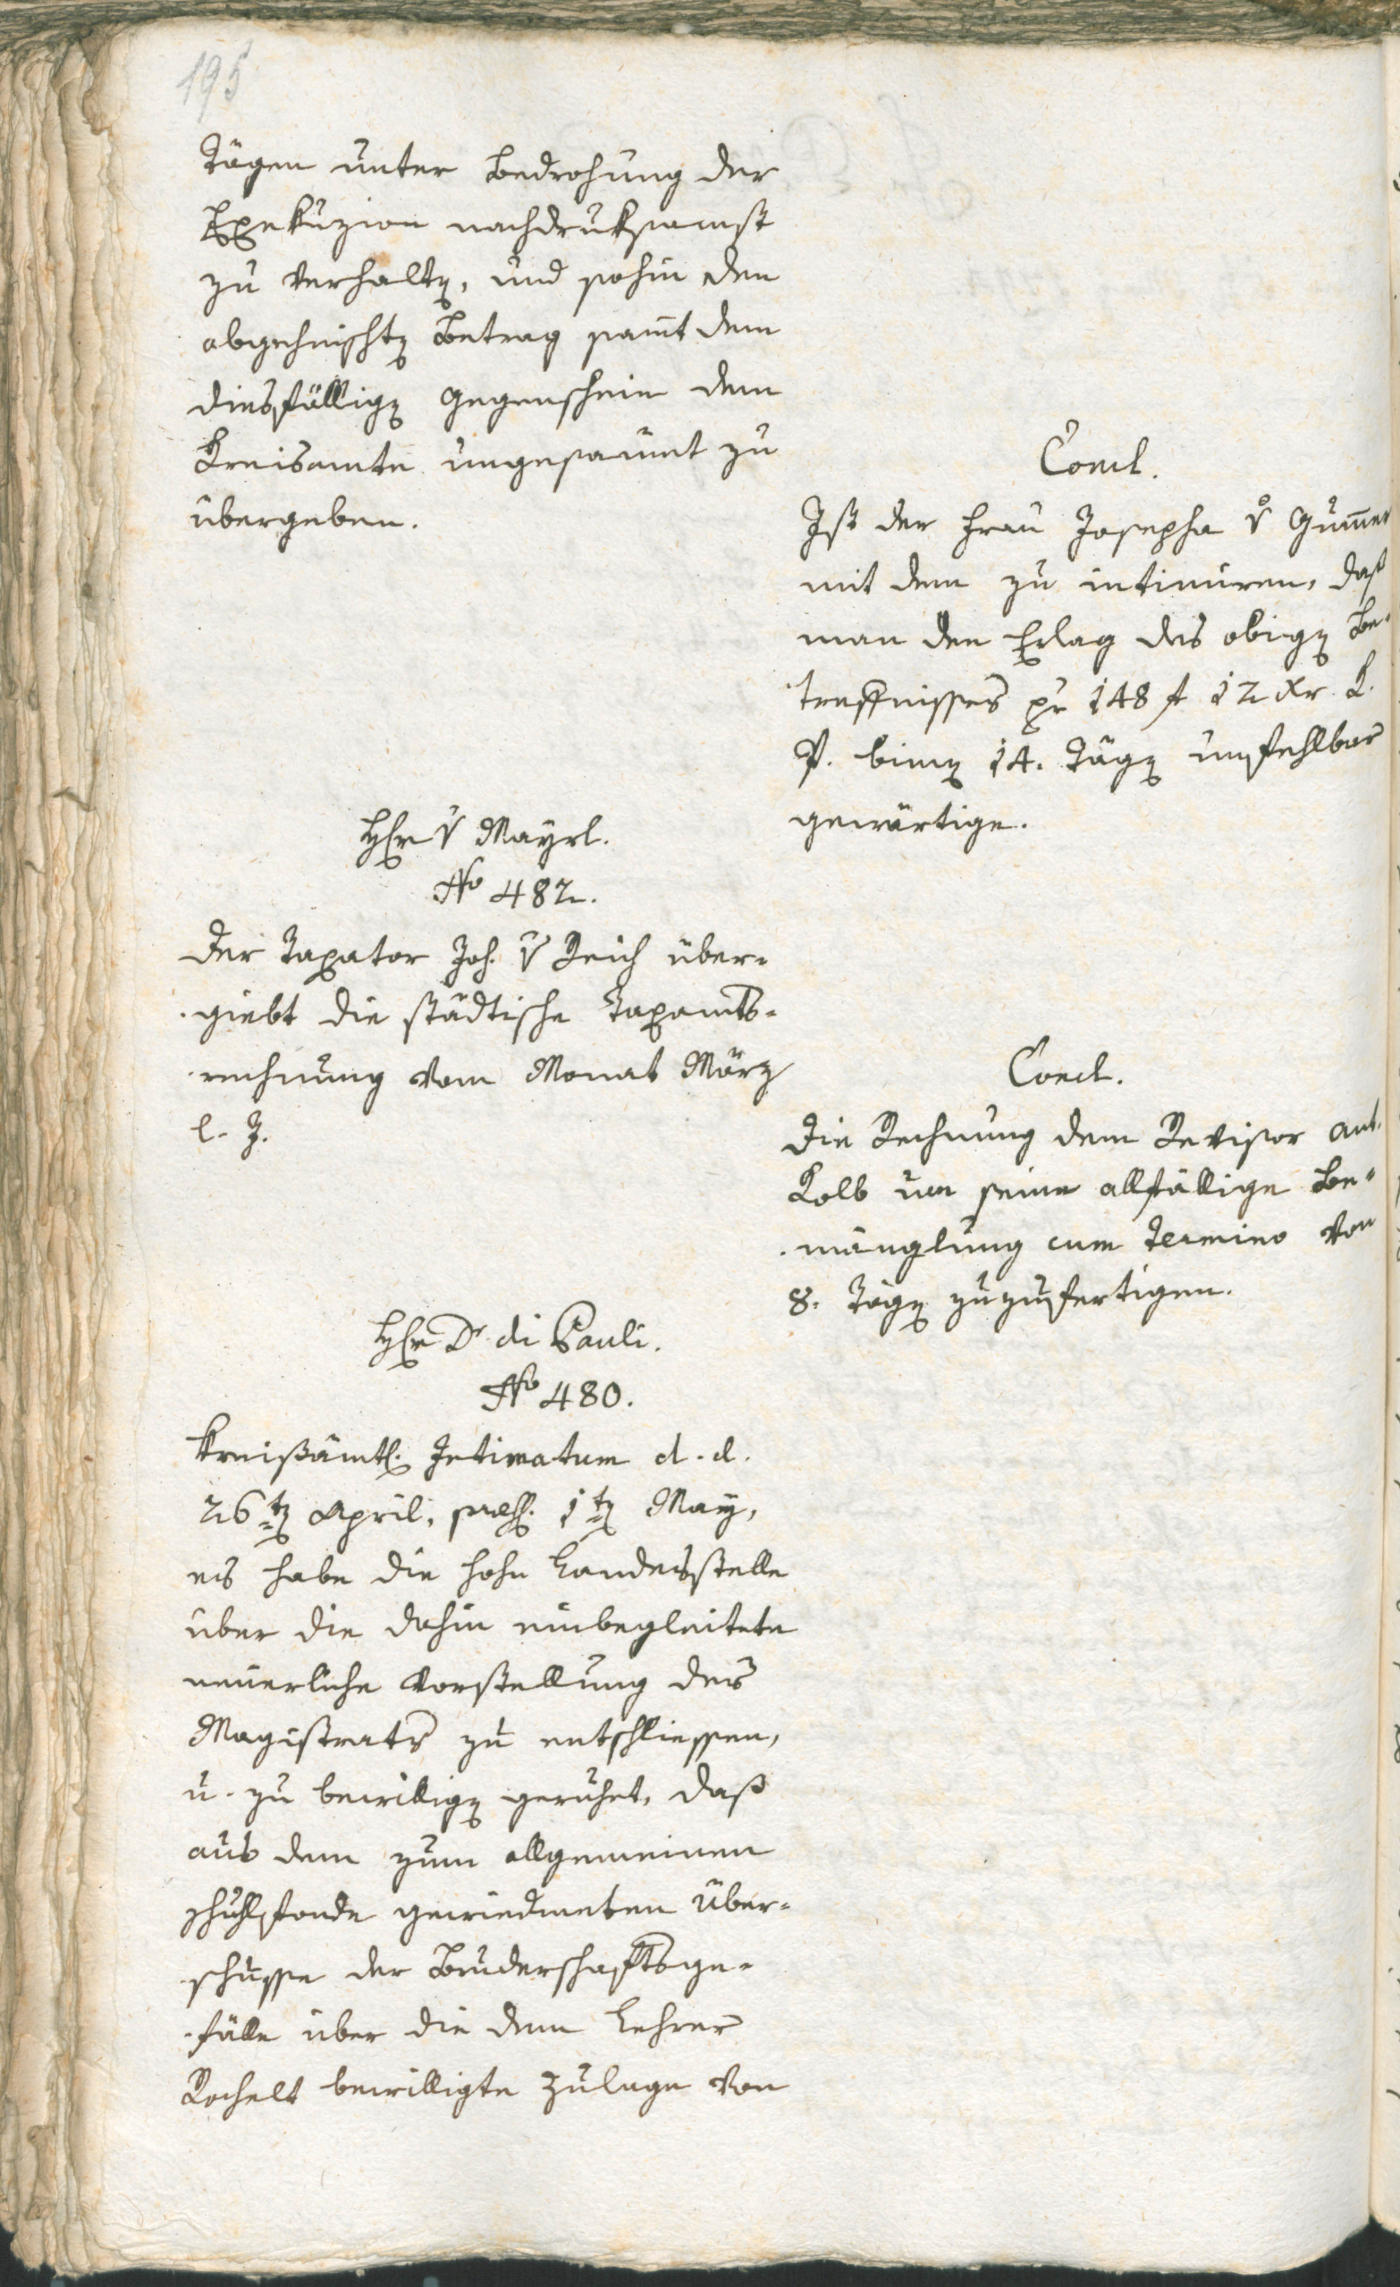 195
Tägen unter Bedrohung der
Exekuzion nachdruksamst
zu verhalten, und sohin den
abgeheischten Betrag samt dem
diesfälligen Gegenschein dem
Kreisamte ungesaumt zu
übergeben.
Concl.
Ist der Frau Josepha v Gumer
mit dem zu intimiren, daß
man den Erlag des obigen Be-
treffnisses pr 148 f 12 Xr. K.
P. binen 14. Tägen unfehlbar
gewärtige.
Herr v Mayrl.
No 482.
Der Taxator Joh. v Reich über-
giebt die städtische Taxamts-
rechnung vom Monat März
l. J.
Concl.
Die Rechnung dem Revisor Ant.
Kolb um seine allfällige Be-
mänglung cum Termino von
8. Tägen zuzufertigen.
Herr Dr di Pauli.
No 480.
Kreißämtl. Intimatum d. d.
26ten April, praes. 1ten May,
es habe die hohe Landesstelle
über die dahin einbegleitete
neuerliche Vorstellung des
Magistrats zu entschliessen,
u. zu bewilligen geruhet, daß
aus dem zum allgemeinen
Schuhlfonde gewiedmeten Über-
schusse der Bruderschaftsge-
fälle über die dem Lehrer
Rochelt bewilligte Zulage von